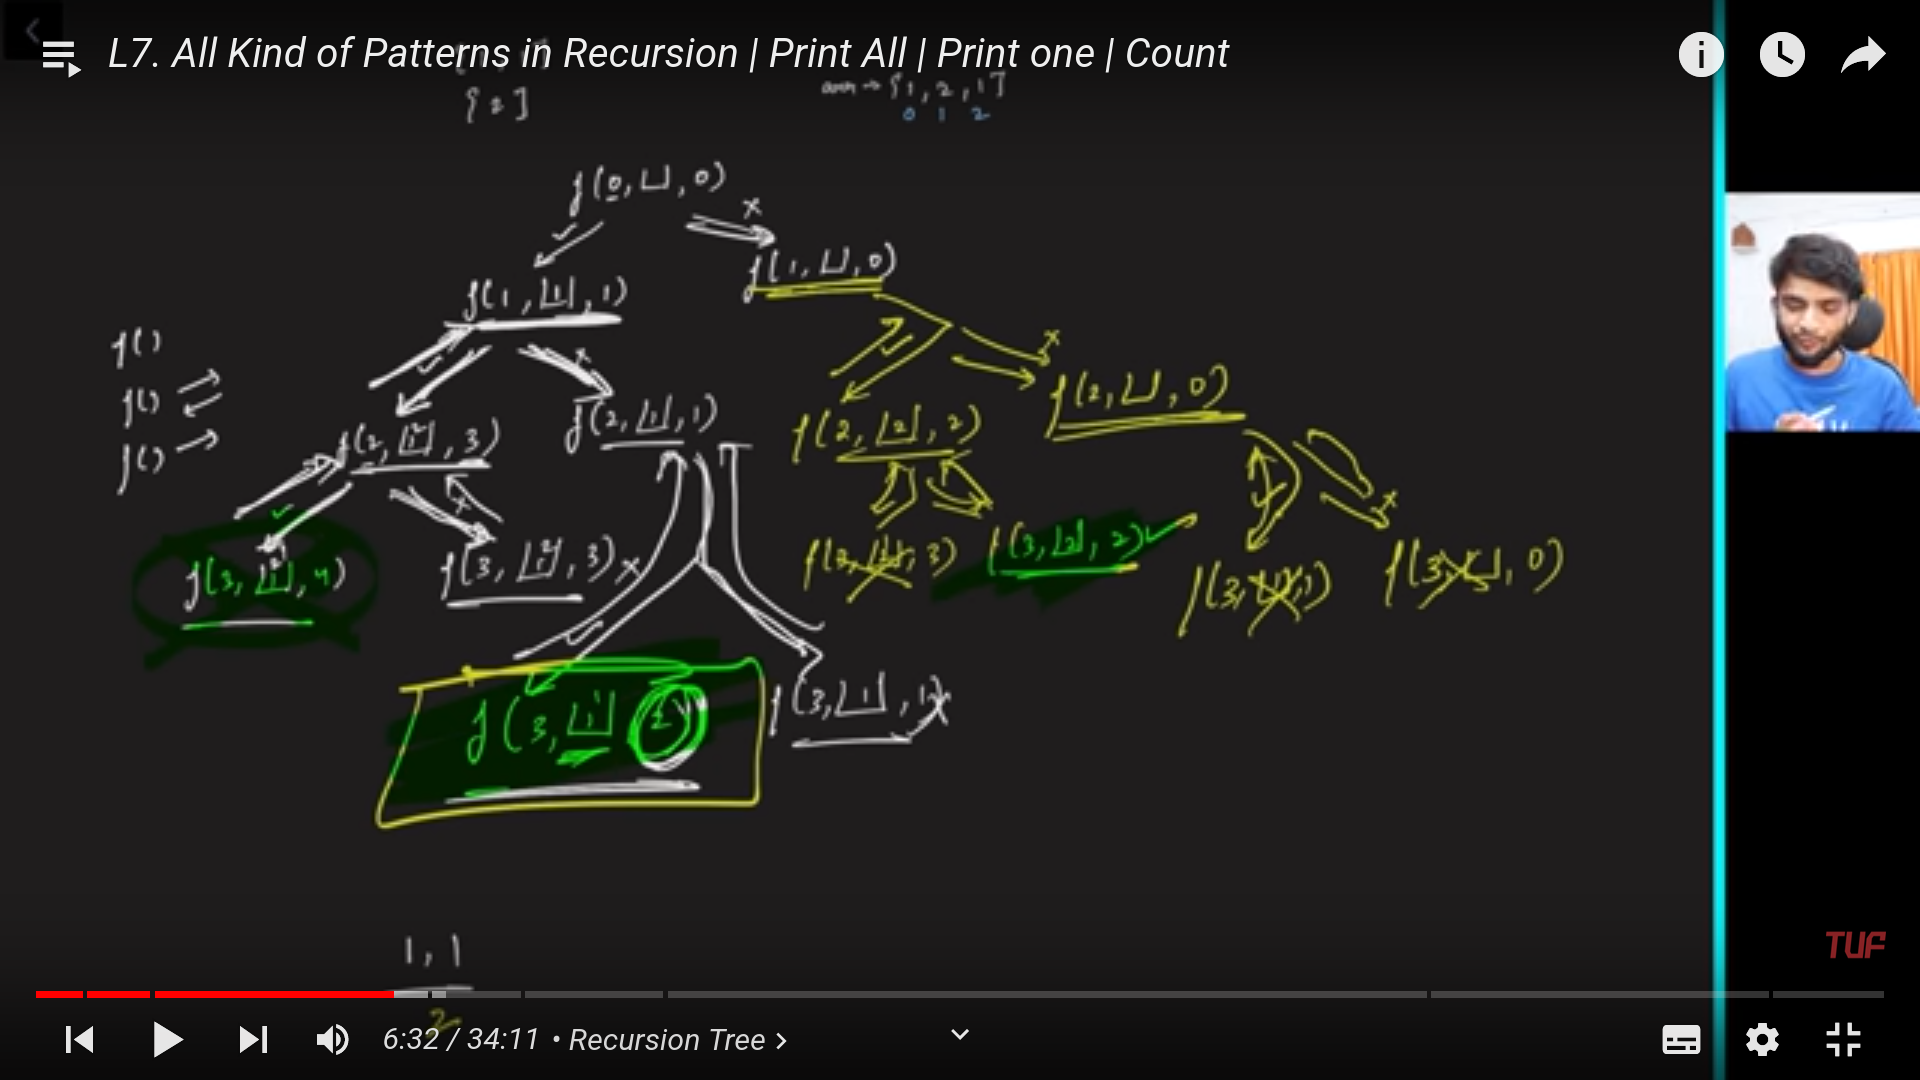 L7. All Kind of Patterns in Recursion | Print All | Print one | Count
[2]
arr → [1, 2, 1]
0 1 2
f(0, [], 0)
✓ x
f(1, [], 0)
f(1, [1], 1)
f()
f()
f()
f(2, [], 0)
f(2, [1 2], 3)
f(2, [1], 1)
f(2, [2], 2)
f(3, [2], 2) ✓
f(3, [1 2], 3) x
f(3, [], 0)
f(3, [1 2 1], 4)
f(3, [1], 1) x
f(3, [1 1], 2)
1, 1
2
TUF
6:32 / 34:11 • Recursion Tree >